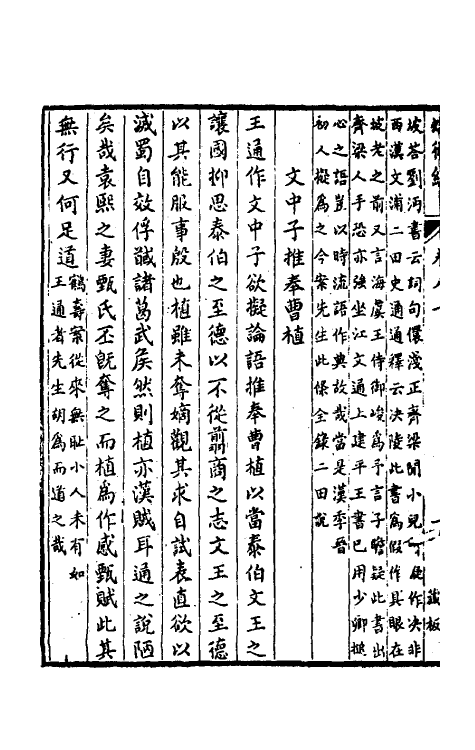 坡答劉沔書云詞句儇淺正齊梁間小兒所擬作决非
西漢文浦二田史通通釋云决陵此書為假作具眼在
坡老之前又言海虞王侍御峻為予言子瞻疑此書出
齊梁人手恐亦強坐江文通上建平王書已用少卿搥
心之語豈以時流語作典故哉當是漢季晉
初人擬為之今案先生此條全錄二田說
文中子推奉曹植
王通作文中子欲擬論語推奉曹植以當泰伯文王之
讓國抑思泰伯之至德以不從翦商之志文王之至德
以其能服事殷也植雖未奪嫡觀其求自試表直欲以
滅蜀自效俘馘諸葛武侯然則植亦漢賊耳通之說陋
矣哉袁熙之妻甄氏丕旣奪之而植為作感甄賦此其
無行又何足道
鶴壽案從來無耻小人未有如
王通者先生胡為而道之哉